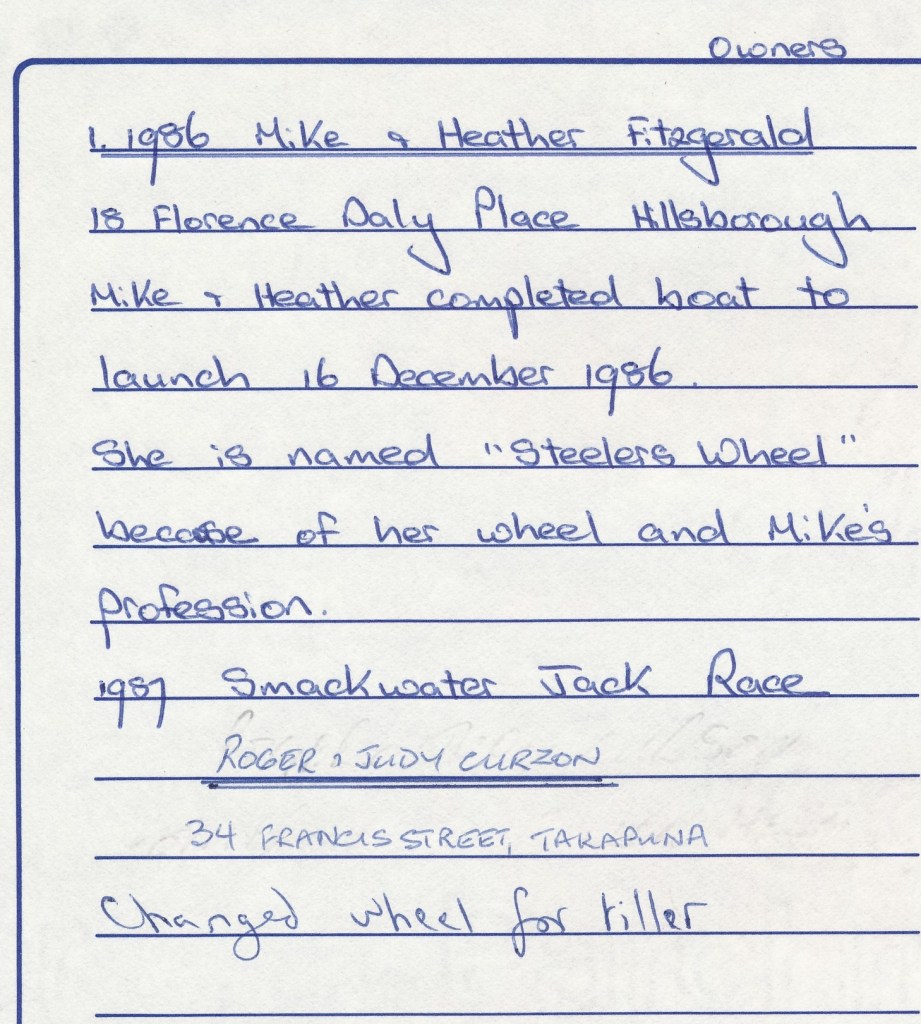 Owners
1. 1986 Mike & Heather Fitzgerald
18 Florence Daly Place Hillsborough
Mike & Heather completed boat to
launch 16 December 1986.
She is named "Steelers Wheel"
because of her wheel and Mike's
profession.
1987 Smackwater Jack Race
ROGER & JUDY CURZON
34 FRANCIS STREET, TAKAPUNA
Changed wheel for tiller